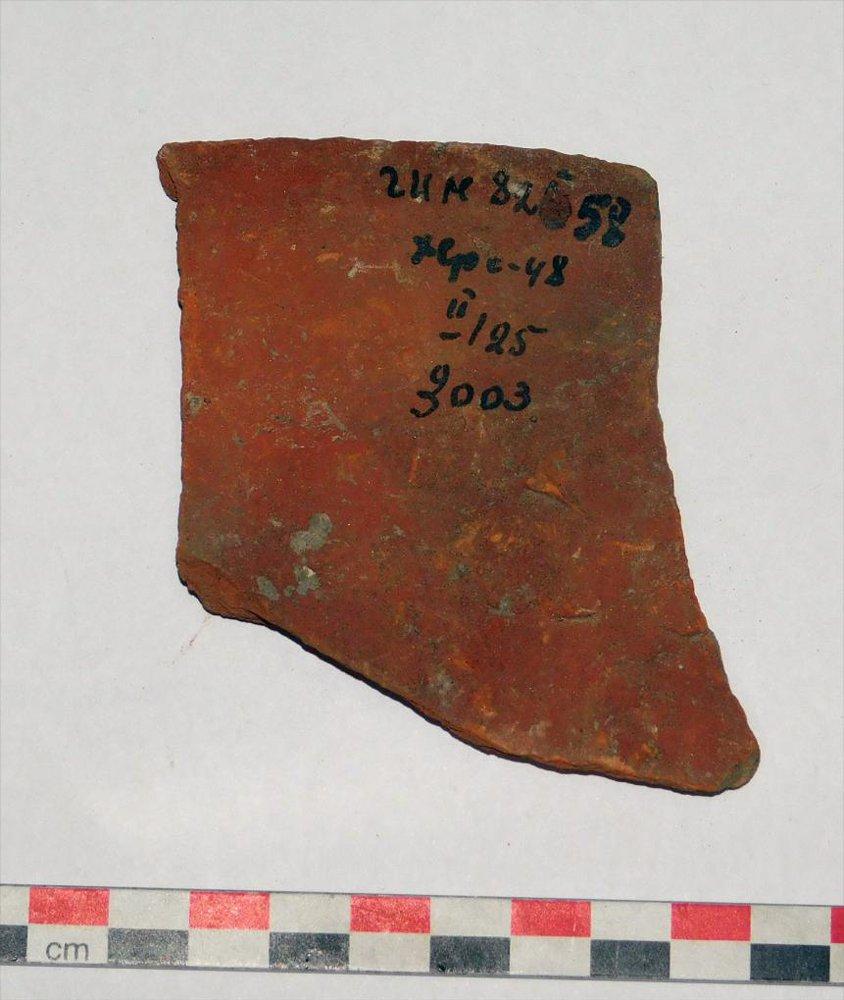 гим 82 58
херс-48
II/125
9003
cm